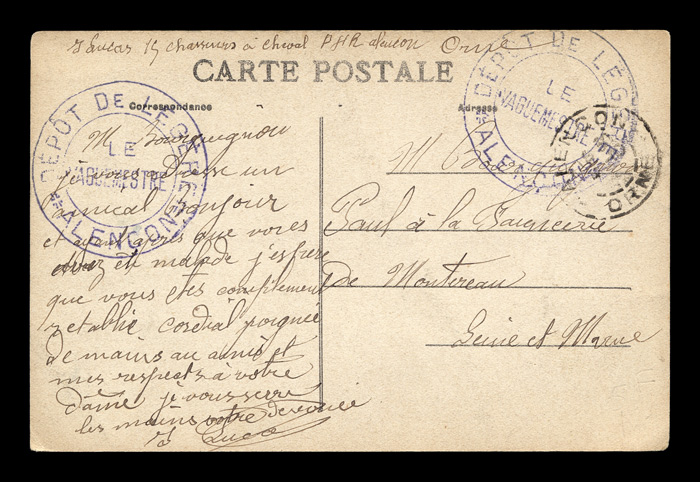 Lucas 15 chasseurs à cheval PHR alencon Orne
CARTE POSTALE
Correspondance
Adresse
DÉPÔT DE LÉG
LE
VAGUEMESTRE
ALENÇON
DÉPÔT DE LÉG
LE
VAGUEMESTRE
ALENÇON
ORNE
M Bourguignon
je vous adresse un
amical bonjour
et ayant apres que vous
etiez malade j'espere
que vous etes completement
retablie cordial poignée
de mains au amis et
mes respects à votre
dame je vous serre
les mains votre devouée
Lucas
M
Paul à la Faiencerie
de Montereau
Seine et Marne